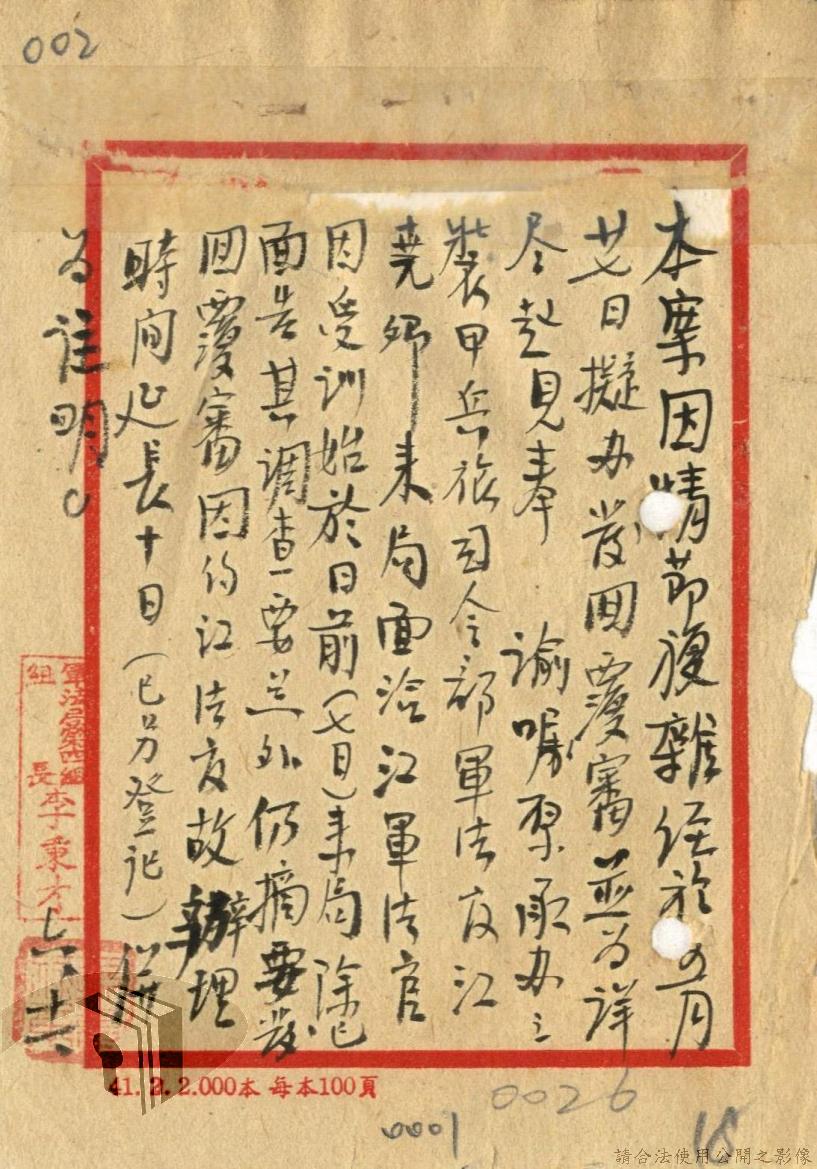 002
本案因情節複雜経於五月
廿七日擬办發回覆審並为詳
尽起見奉 諭囑原承办之
裝甲兵旅司令部軍法官江
堯卿来局面洽江軍法官
因受訓始於日前(七日)来局除
面告其调查要点外仍摘要發
回覆審因約江法官故辦理
時间延長十日(已另登记)
为註明。
軍法局第四組
組長李秉才
六、十六
41.2.2.000本 每本100頁
0026
0001
18
請合法使用公開之影像